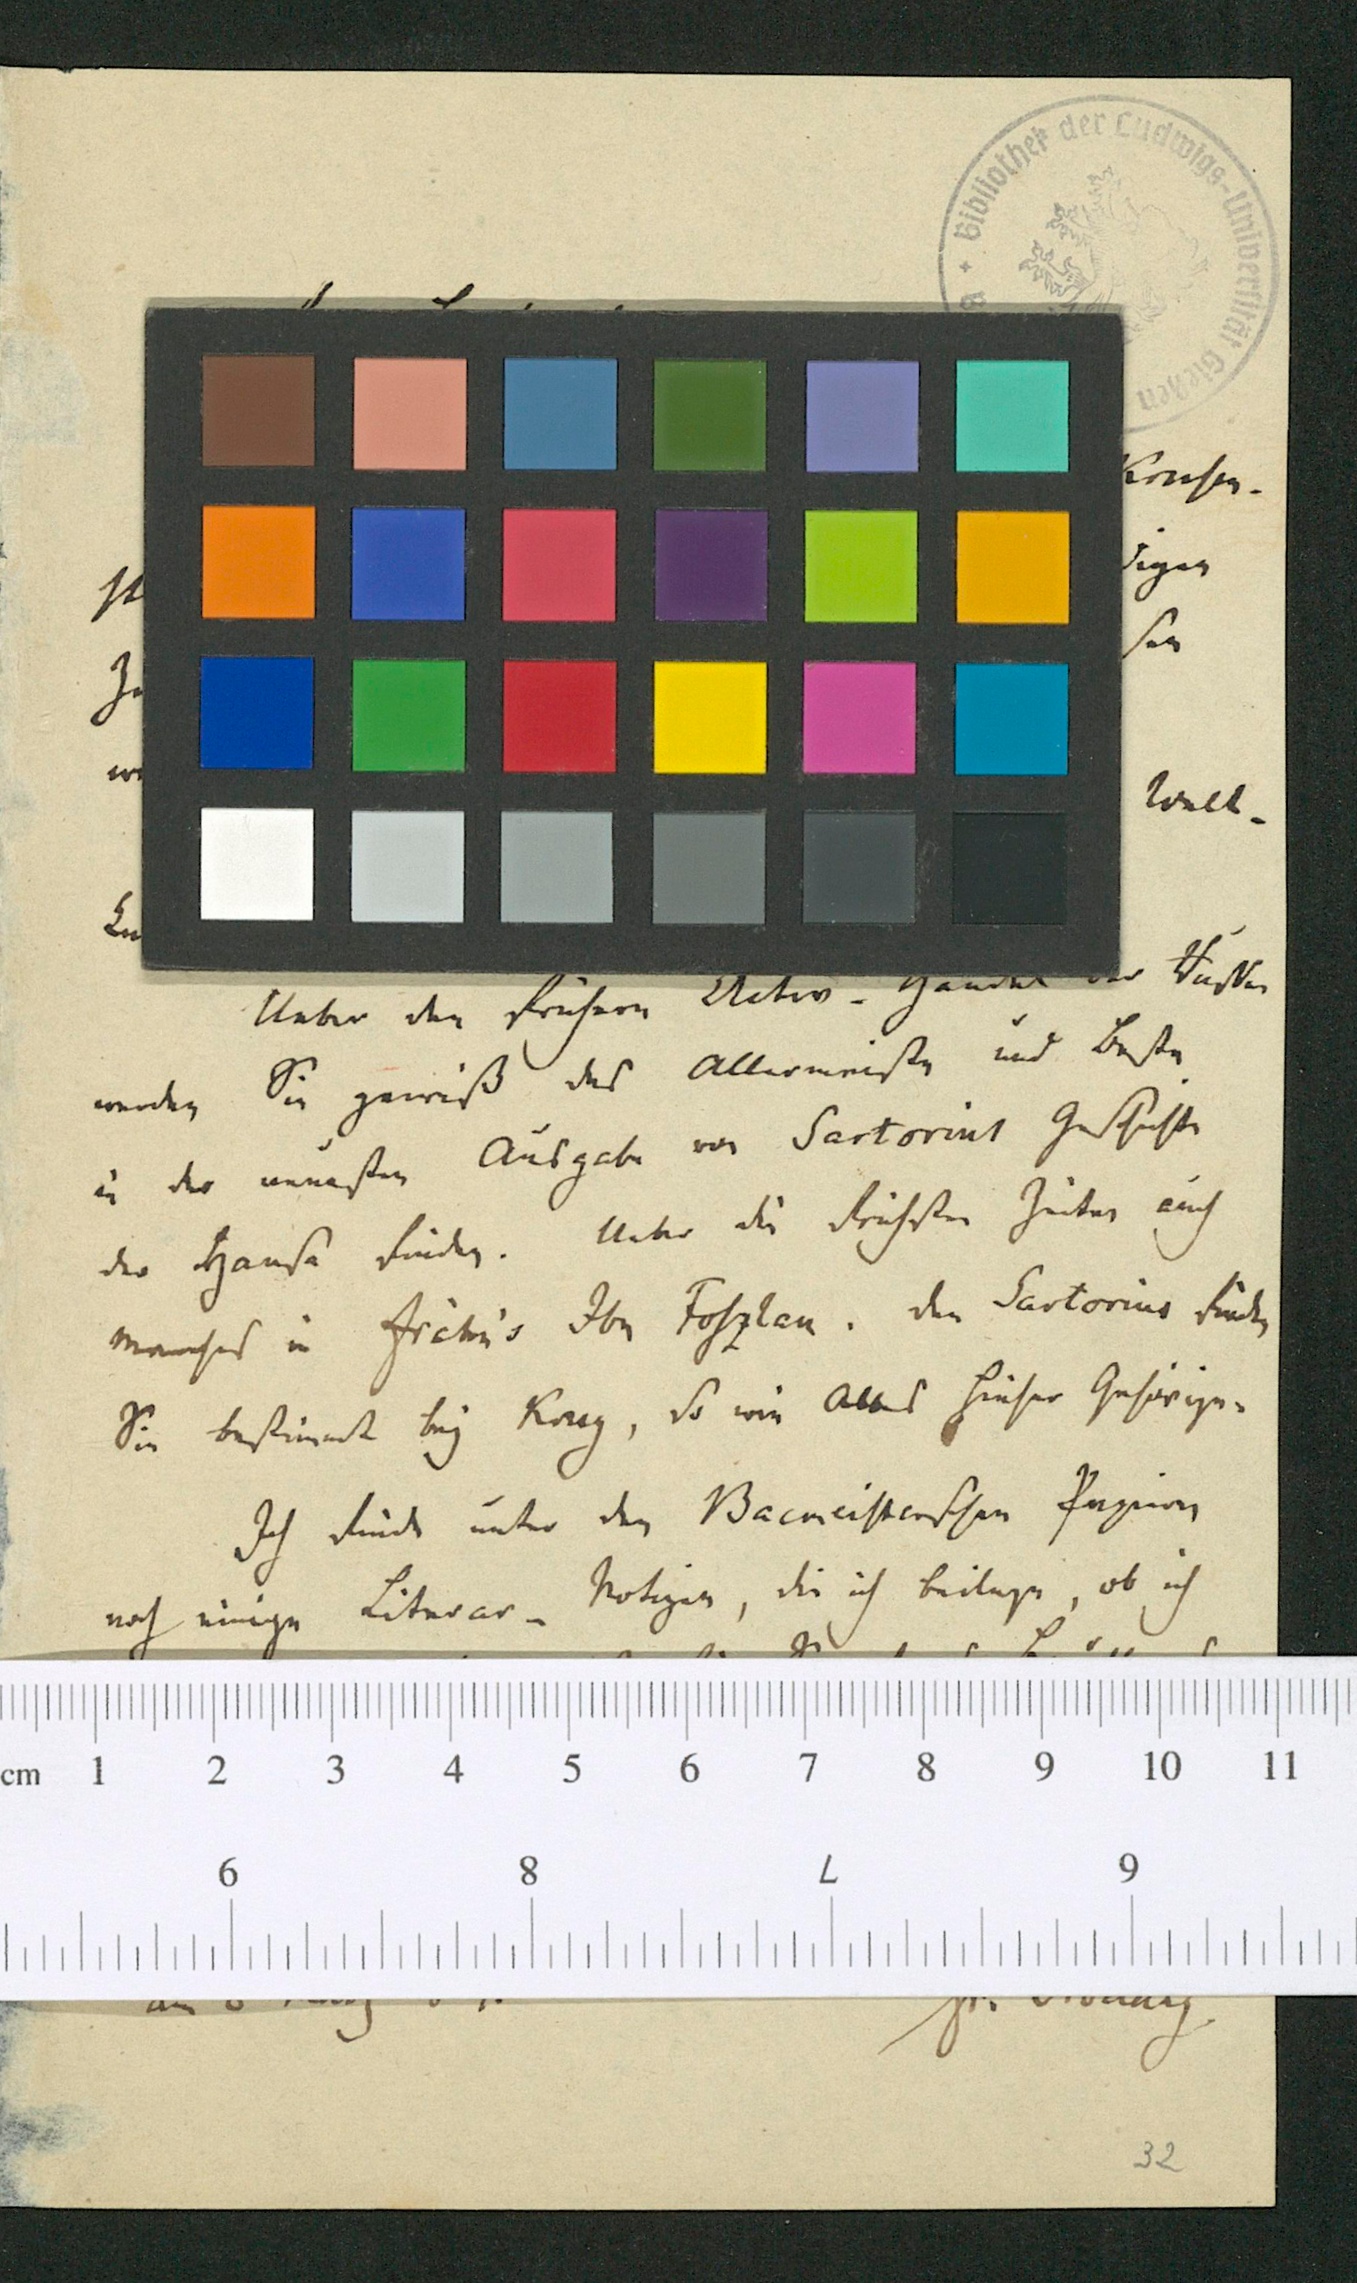 Bibliothek der Ludwigs-Universität Gießen
Krusen-
digen
sen
Welt-
Ueber den frühern Activ-Handel der Russen
werden Sie gewiß das Allermeiste und Beste
in der neuesten Ausgabe von Sartorius Geschichte
der Hansa finden. Ueber die frühsten Zeiten auch
manches in Frähn's Ibn Foszlan. den Sartorius finden
Sie bestimmt bey Krug, so wie alles hieher Gehörige.
Ich finde unter den Bacmeisterschen Papieren
noch einige Literar-Notizen, die ich beilege, ob ich
cm 1 2 3 4 5 6 7 8 9 10 11
6 8 7 9
Fr. Adelung
32